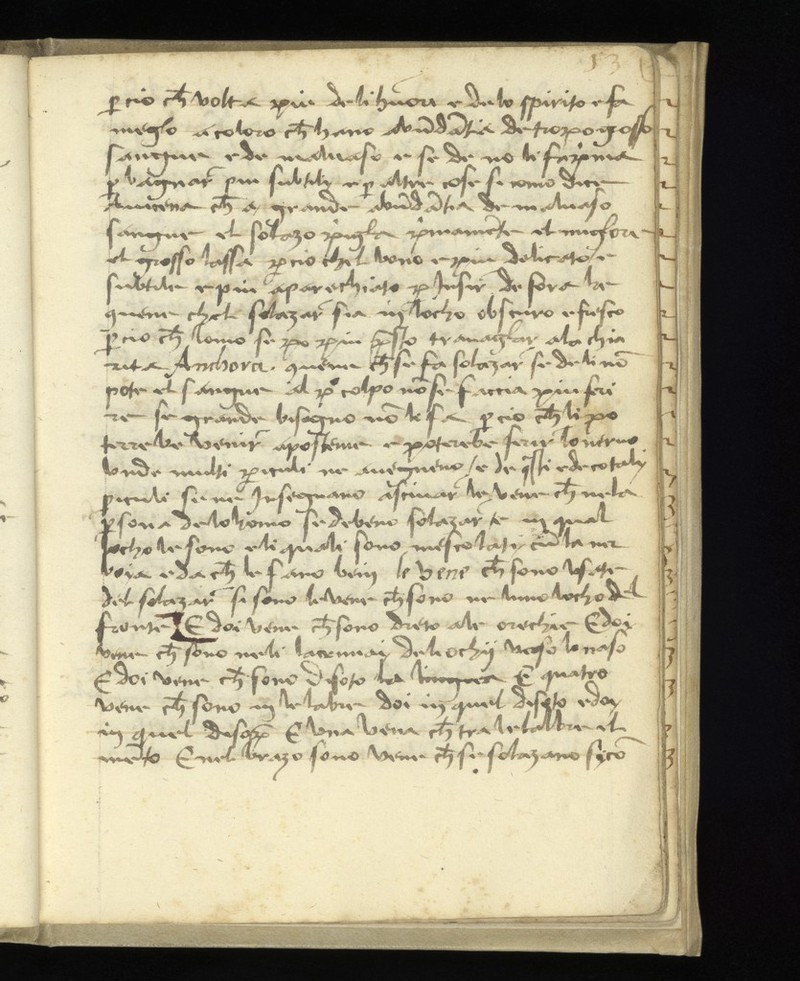 53
p cio ch̄ volta piu deli huōri e delo spirito e fa
meglo a coloro ch̄ hano abūdātia de tropo gosso
sangue e de maluaso e se de no li fa pma
p bagnar piu subtili e p altre cose si como dice
Auicena ch̄ a grande abūdātia de maluaso
sangue el solazo pigla pmamēte el miglore
el grosso lassa p cio chel bono e piu delicato e
subtile e piu aparechiato p Insir de fora
quene chel solazar sia in locho obscuro e fusco
p cio ch̄ lomo se po piu psto trauaglar ala chia
rita Anchora quene ch̄ se fa solazar se deli nō
pote el sangue al po colpo nō se faccia piu feri
re se grande bisogno nō le fa p cio ch̄ li po
terrebe venir aposteme e poterebe ferir lo neruo
unde multi piculi ne auegneno e de qsti e de cotali
piculi se ne Insegnano asciuar le vene ch̄ ne la
psona de lo homo se debeno solazar in qual
locho le sono e li quali sono mescolati cū la ner
e da ch̄ le fano beni le vene ch̄ sono usate
del solazar si sono le vene ch̄ sono ne luno locho del
fronte E doi vene ch̄ sono dreto ale orechie E doi
vene ch̄ sono neli lacrimai deli ochij verso lo naso
E doi vene ch̄ sono disoto la lingua E quatro
vene ch̄ sono in le labre doi in quel disoto e doi
in quel disop E una vena ch̄ tra le labbre el
mēto E nel brazo sono vene ch̄ se solazano sycō